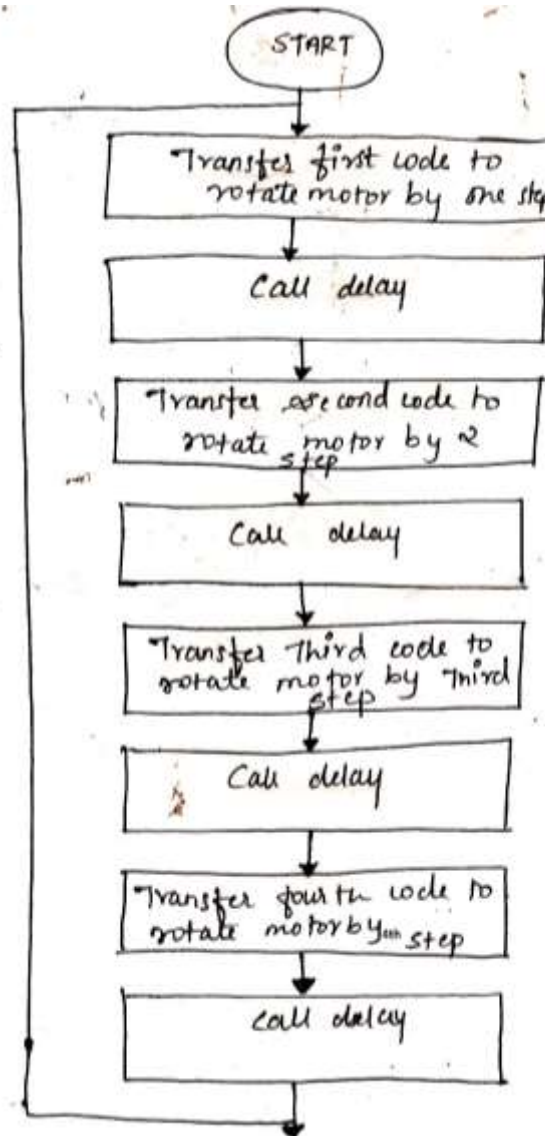 START
Transfer first code to
rotate motor by one step
Call delay
Transfer second code to
rotate motor by 2
step
Call delay
Transfer Third code to
rotate motor by Third
step
Call delay
Transfer fourth code to
rotate motor by step
Call delay